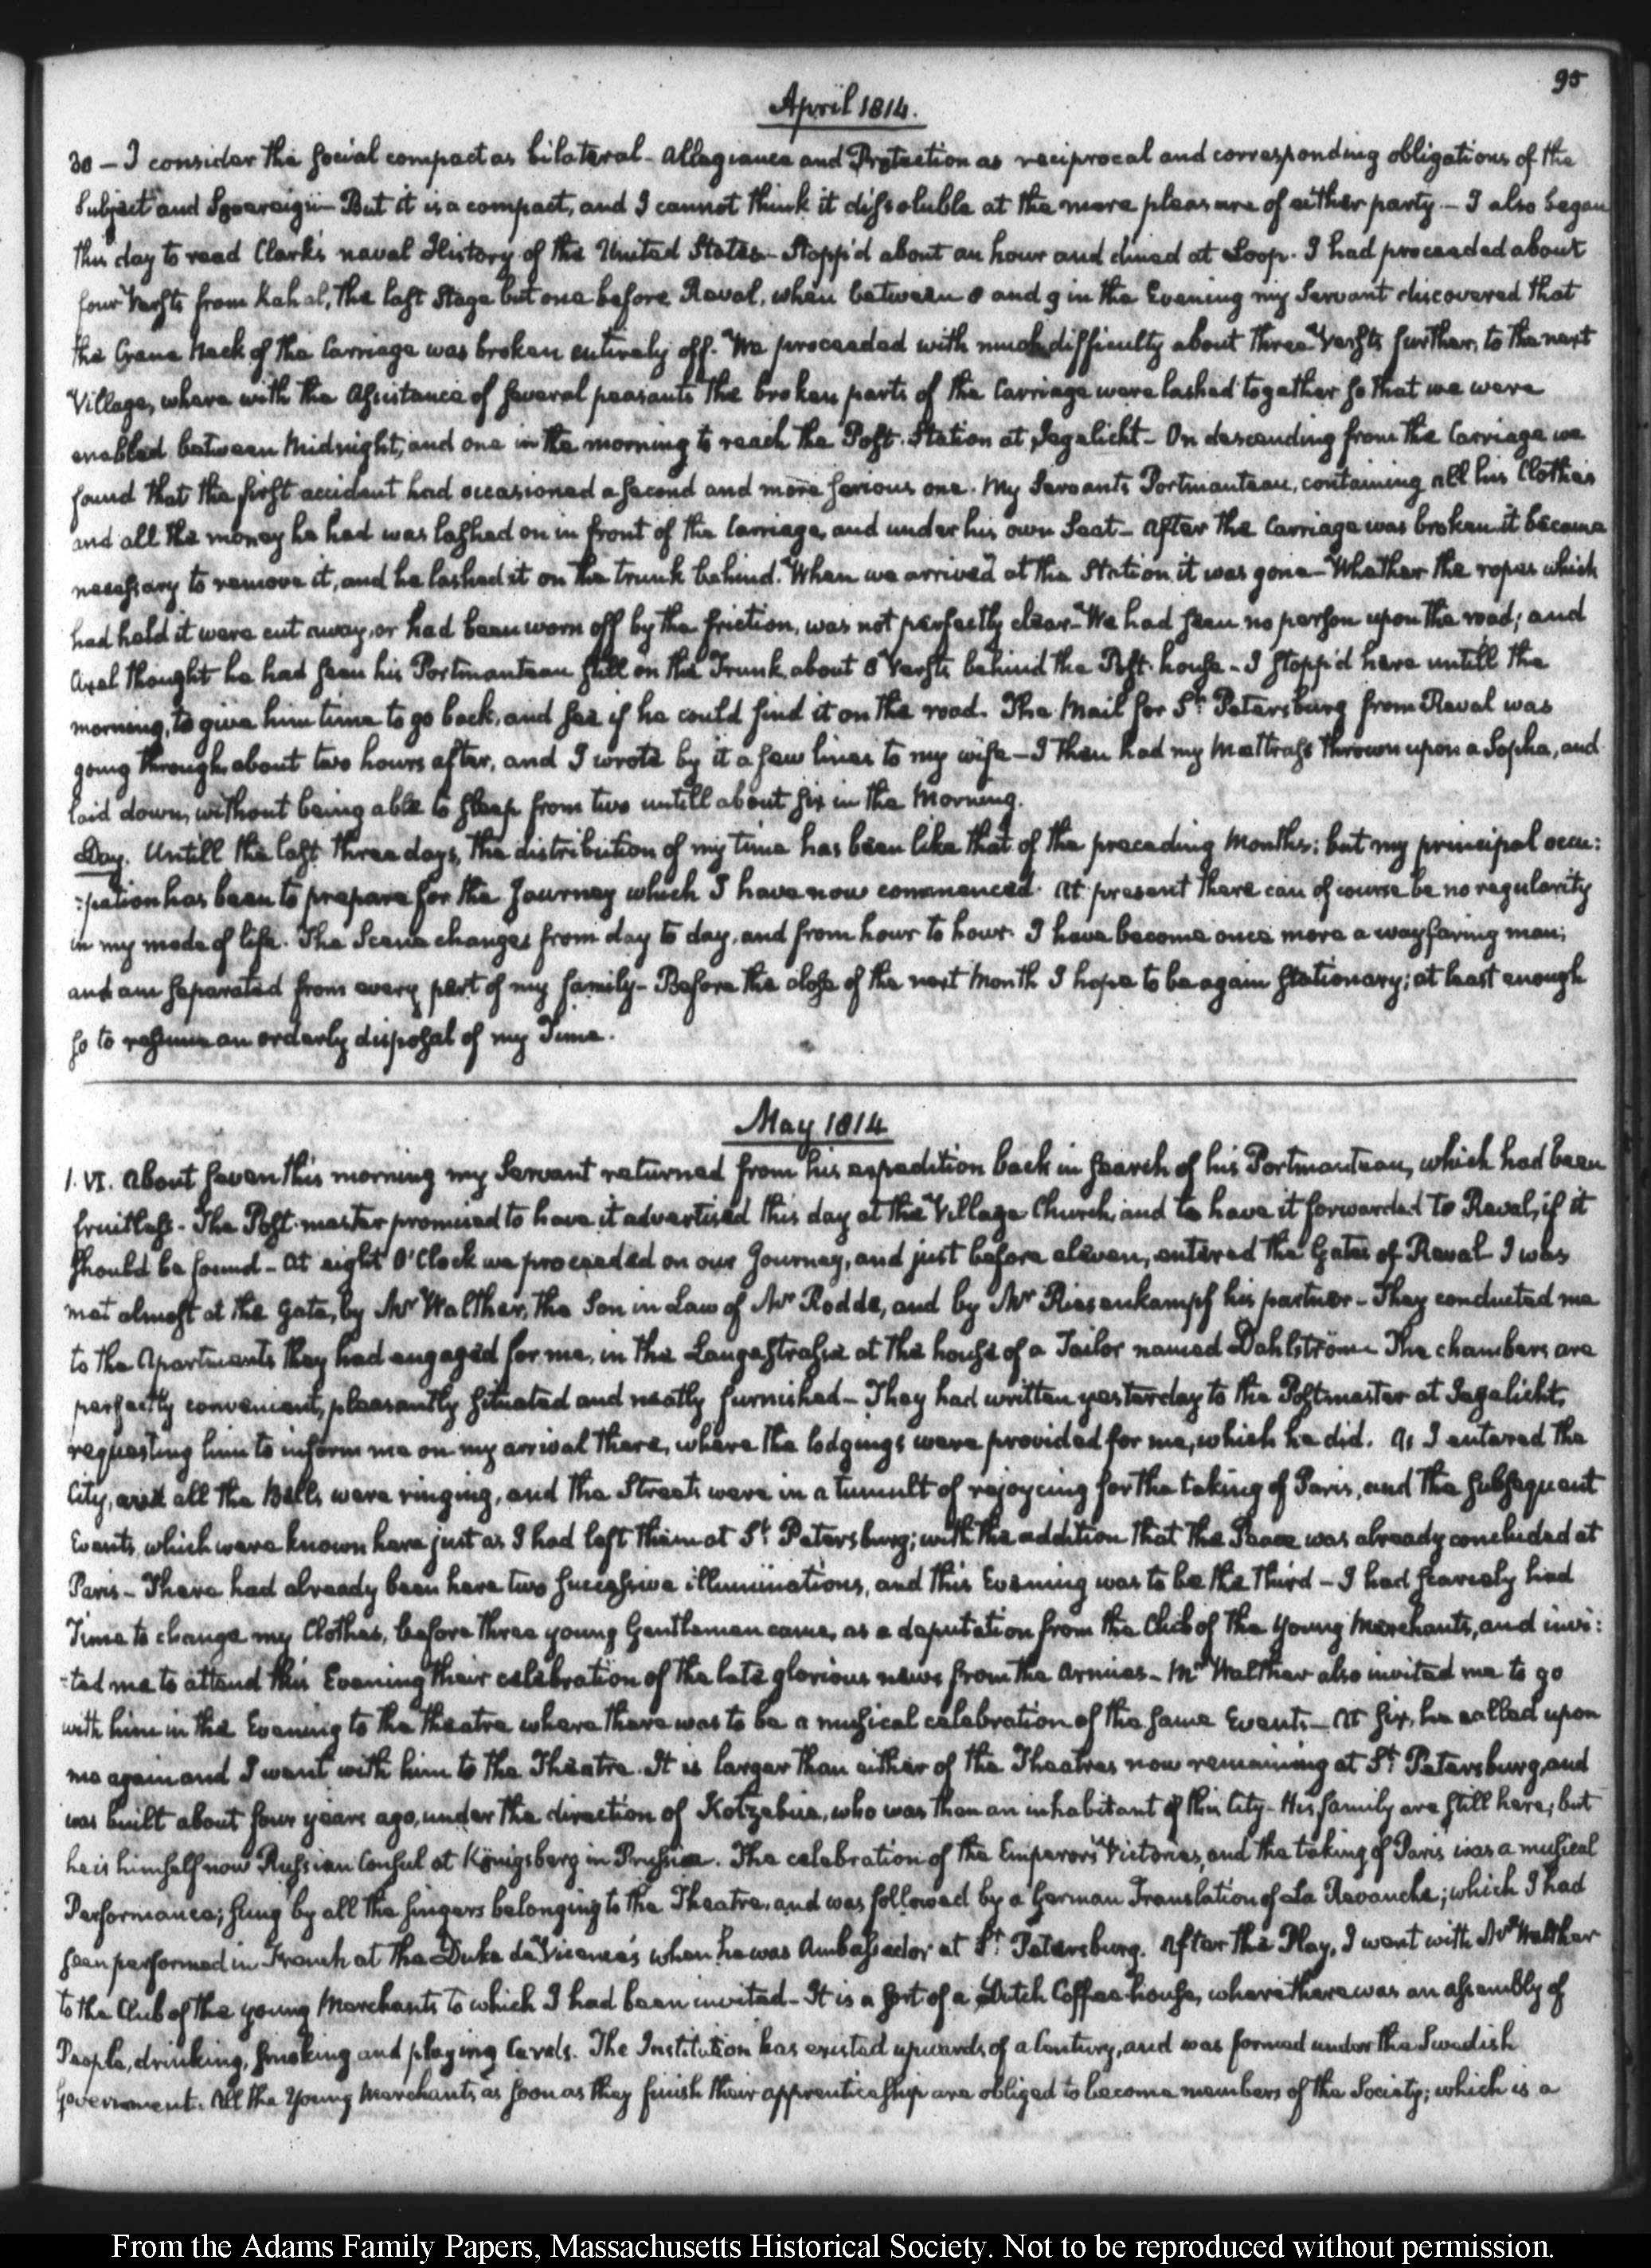 95
April 1814.
30 - I consider the social compact as bilateral - Allegiance and Protection as reciprocal and corresponding obligations of the
Subject and Sovereign - But it is a compact, and I cannot think it dissoluble at the mere pleasure of either party. - I also began
this day to read Clark's naval History of the United States - Stopp'd about an hour and dined at Loop. I had proceeded about
four Versts from Kahal, the last Stage but one before Reval, when between 8 and 9 in the Evening my Servant discovered that
the Crane Neck of the Carriage was broken entirely off. We proceeded with much difficulty about three Versts further, to the next
Village, where with the Assistance of several peasants the broken parts of the Carriage were lashed together so that we were
enabled between Midnight, and one in the morning to reach the Post-Station at Jegelicht - On descending from the Carriage we
found that the first accident had occasioned a second and more serious one. My Servants Portmanteau, containing all his Clothes
and all the money he had was lashed on in front of the Carriage, and under his own Seat - After the Carriage was broken it became
necessary to remove it, and he lashed it on the trunk behind. When we arrived at the Station it was gone - Whether the ropes which
had held it were cut away, or had been worn off by the friction, was not perfectly clear - We had seen no person upon the road; and
Axel thought he had seen his Portmanteau still on the Trunk about 8 Versts behind the Post-house - I stopp'd here untill the
morning, to give him time to go back, and see if he could find it on the road. The Mail for St. Petersburg from Reval was
going through about two hours after, and I wrote by it a few lines to my wife - I then had my Mattrass thrown upon a Sopha, and
laid down, without being able to sleep from two untill about six in the Morning.
Day. Untill the last three days, the distribution of my time has been like that of the preceding Months: but my principal occu:
:pation has been to prepare for the Journey which I have now commenced. At present there can of course be no regularity
in my mode of life. The Scene changes from day to day, and from hour to hour. I have become once more a wayfaring man;
and am separated from every part of my family - Before the close of the next Month I hope to be again stationary; at least enough
so to resume an orderly disposal of my Time.
May 1814
1. VI. About seven this morning my Servant returned from his expedition back in search of his Portmanteau, which had been
fruitless - The Post-master promised to have it advertised this day at the Village Church, and to have it forwarded to Reval, if it
should be found - At eight O'Clock we proceeded on our Journey, and just before eleven, entered the Gates of Reval I was
met almost at the Gate, by Mr Walther, the Son in Law of Mr Rodde, and by Mr Riesenkampf his partner - They conducted me
to the Apartments they had engaged for me, in the Langestrasse at the house of a Tailor named Dahlström - The chambers are
perfectly convenient, pleasantly situated and neatly furnished - They had written yesterday to the Postmaster at Jegelicht,
requesting him to inform me on my arrival there, where the lodgings were provided for me, which he did. As I entered the
City, all the Bells were ringing, and the Streets were in a tumult of rejoycing for the taking of Paris, and the subsequent
Events, which were known here just as I had left them at St. Petersburg; with the addition that the Peace was already concluded at
Paris - There had already been here two successive illuminations, and this Evening was to be the third - I had scarcely had
Time to change my Clothes, before three young Gentlemen came, as a deputation from the Club of the Young Merchants, and invi:
-ted me to attend this Evening their celebration of the late glorious news from the Armies - Mr Walther also invited me to go
with him in the Evening to the theatre where there was to be a musical celebration of the same Events - At six, he called upon
me again and I went with him to the Theatre. It is larger than either of the Theatres now remaining at St. Petersburg, and
was built about four years ago, under the direction of Kotzebue, who was then an inhabitant of this City - His family are still here; but
he is himself now Russian Consul at Königsberg in Prussia. The celebration of the Emperor's Victories, and the taking of Paris was a musical
Performance; sung by all the singers belonging to the Theatre, and was followed by a German Translation of La Revanche; which I had
seen performed in French at the Duke de Vicence's when he was Ambassador at St. Petersburg. After the Play, I went with Mr Walther
to the Club of the young Merchants to which I had been invited - It is a sort of a Dutch Coffee-house, where there was an assembly of
People, drinking, smoking and playing Cards. The Institution has existed upwards of a Century, and was formed under the Swedish
Government. All the Young Merchants as soon as they finish their apprenticeship are obliged to become members of the Society; which is a
From the Adams Family Papers, Massachusetts Historical Society. Not to be reproduced without permission.